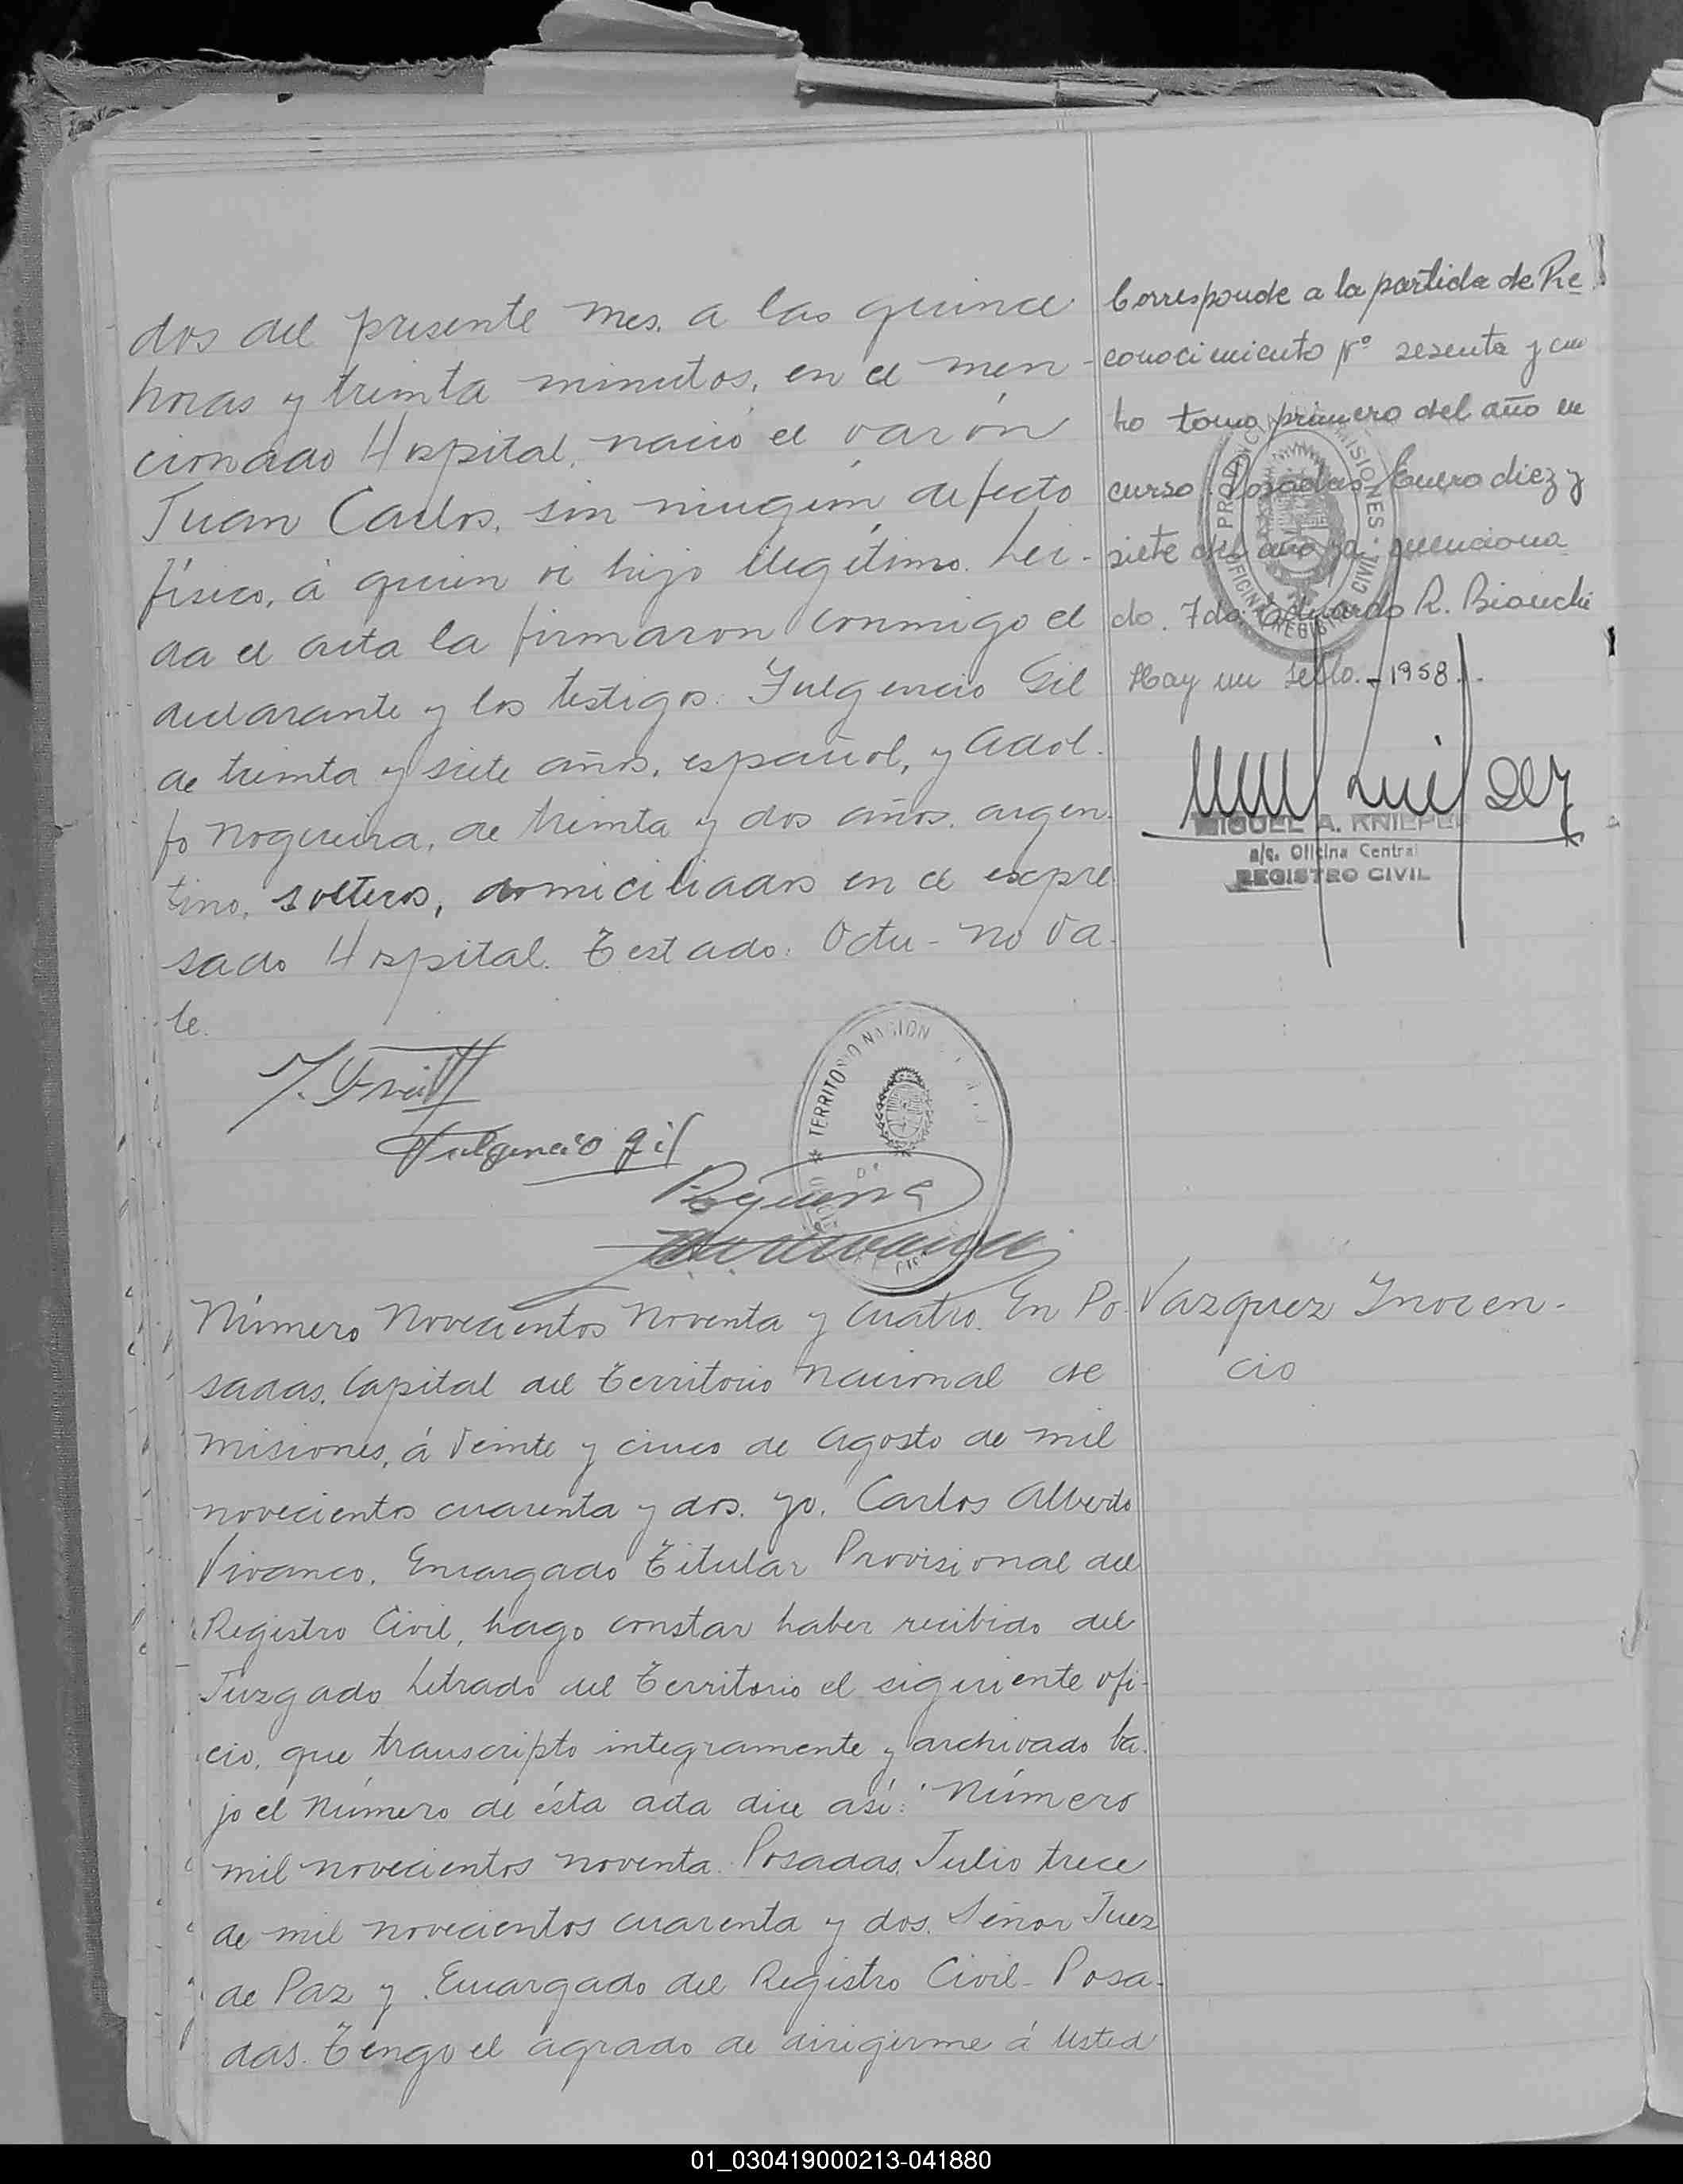 dos del presente mes, a las quince
horas y treinta minutos, en el men-
cionado Hospital, nació el varón
Juan Carlos, sin ningún defecto
físico, á quien vi hijo ilegítimo. Leí-
da el acta la firmaron conmigo el
declarante y los testigos: Fulgencio Gil
de treinta y siete años, español, y Adol-
fo Nogueira, de treinta y dos años, argen-
tino, solteros, domiciliados en el expre-
sado Hospital. Testado: Octu- no va-
le.
Fulgencio Gil
TERRITORIO NACION
Número Novecientos Noventa y Cuatro. En Po-
sadas, Capital del Territorio Nacional de
Misiones, á Veinte y cinco de Agosto de mil
novecientos cuarenta y dos. yo, Carlos Alberto
Vivanco, Encargado Titular Provisional del
Registro Civil, hago constar haber recibido del
Juzgado Letrado del Territorio el siguiente ofi-
cio, que transcripto integramente y archivado ba-
jo el Número de ésta acta dice así: "Número
mil novecientos noventa. Posadas, Julio trece
de mil novecientos cuarenta y dos. Señor Juez
de Paz y Encargado del Registro Civil- Posa-
das. Tengo el agrado de dirigirme á Usted
Corresponde a la partida de Re
conocimiento Nº sesenta y cua
tro tomo primero del año en
curso. Posadas Enero diez y
siete del año ya menciona
do. Fdo: Eduardo R. Bianchi
Hay un sello. - 1958.-
PROVINCIA MISIONES
OFICINA REGISTRO CIVIL
MIGUEL A. KNIEPEL
a/c. Oficina Central
REGISTRO CIVIL
Vazquez Inocen-
cio
01_030419000213-041880